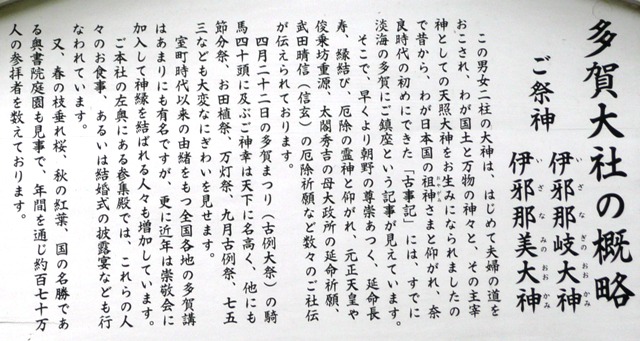 多賀大社の概略
ご祭神
伊邪那岐大神
いざなぎのおおかみ
伊邪那美大神
いざなみのおおかみ
この男女二柱の大神は、はじめて夫婦の道を
おこされ、わが国土と万物の神々と、その主宰
神としての天照大神をお生みになられましたの
で昔から、わが日本国の祖神さまと仰がれ、奈
良時代の初めにできた「古事記」には、すでに
淡海の多賀にご鎮座という記事が見えています。
そこで、早くより朝野の尊崇あつく、延命長
寿、縁結び、厄除の霊神と仰がれ、元正天皇や
俊乗坊重源、太閤秀吉の母大政所の延命祈願、
武田晴信（信玄）の厄除祈願など数々のご社伝
が伝えられております。
四月二十二日の多賀まつり（古例大祭）の騎
馬四十頭に及ぶご神幸は天下に名高く、他にも
節分祭、お田植祭、万灯祭、九月古例祭、七五
三なども大変なにぎわいを見せます。
室町時代以来の由緒をもつ全国各地の多賀講
はあまりにも有名ですが、更に近年は崇敬会に
加入して神縁を結ばれる人々も増加しています。
ご本社の左奥にある参集殿では、これらの人
々のお食事、あるいは結婚式の披露宴なども行
なわれています。
又、春の枝垂れ桜、秋の紅葉、国の名勝であ
る奥書院庭園も見事で、年間を通じ約百七十万
人の参拝者を数えております。